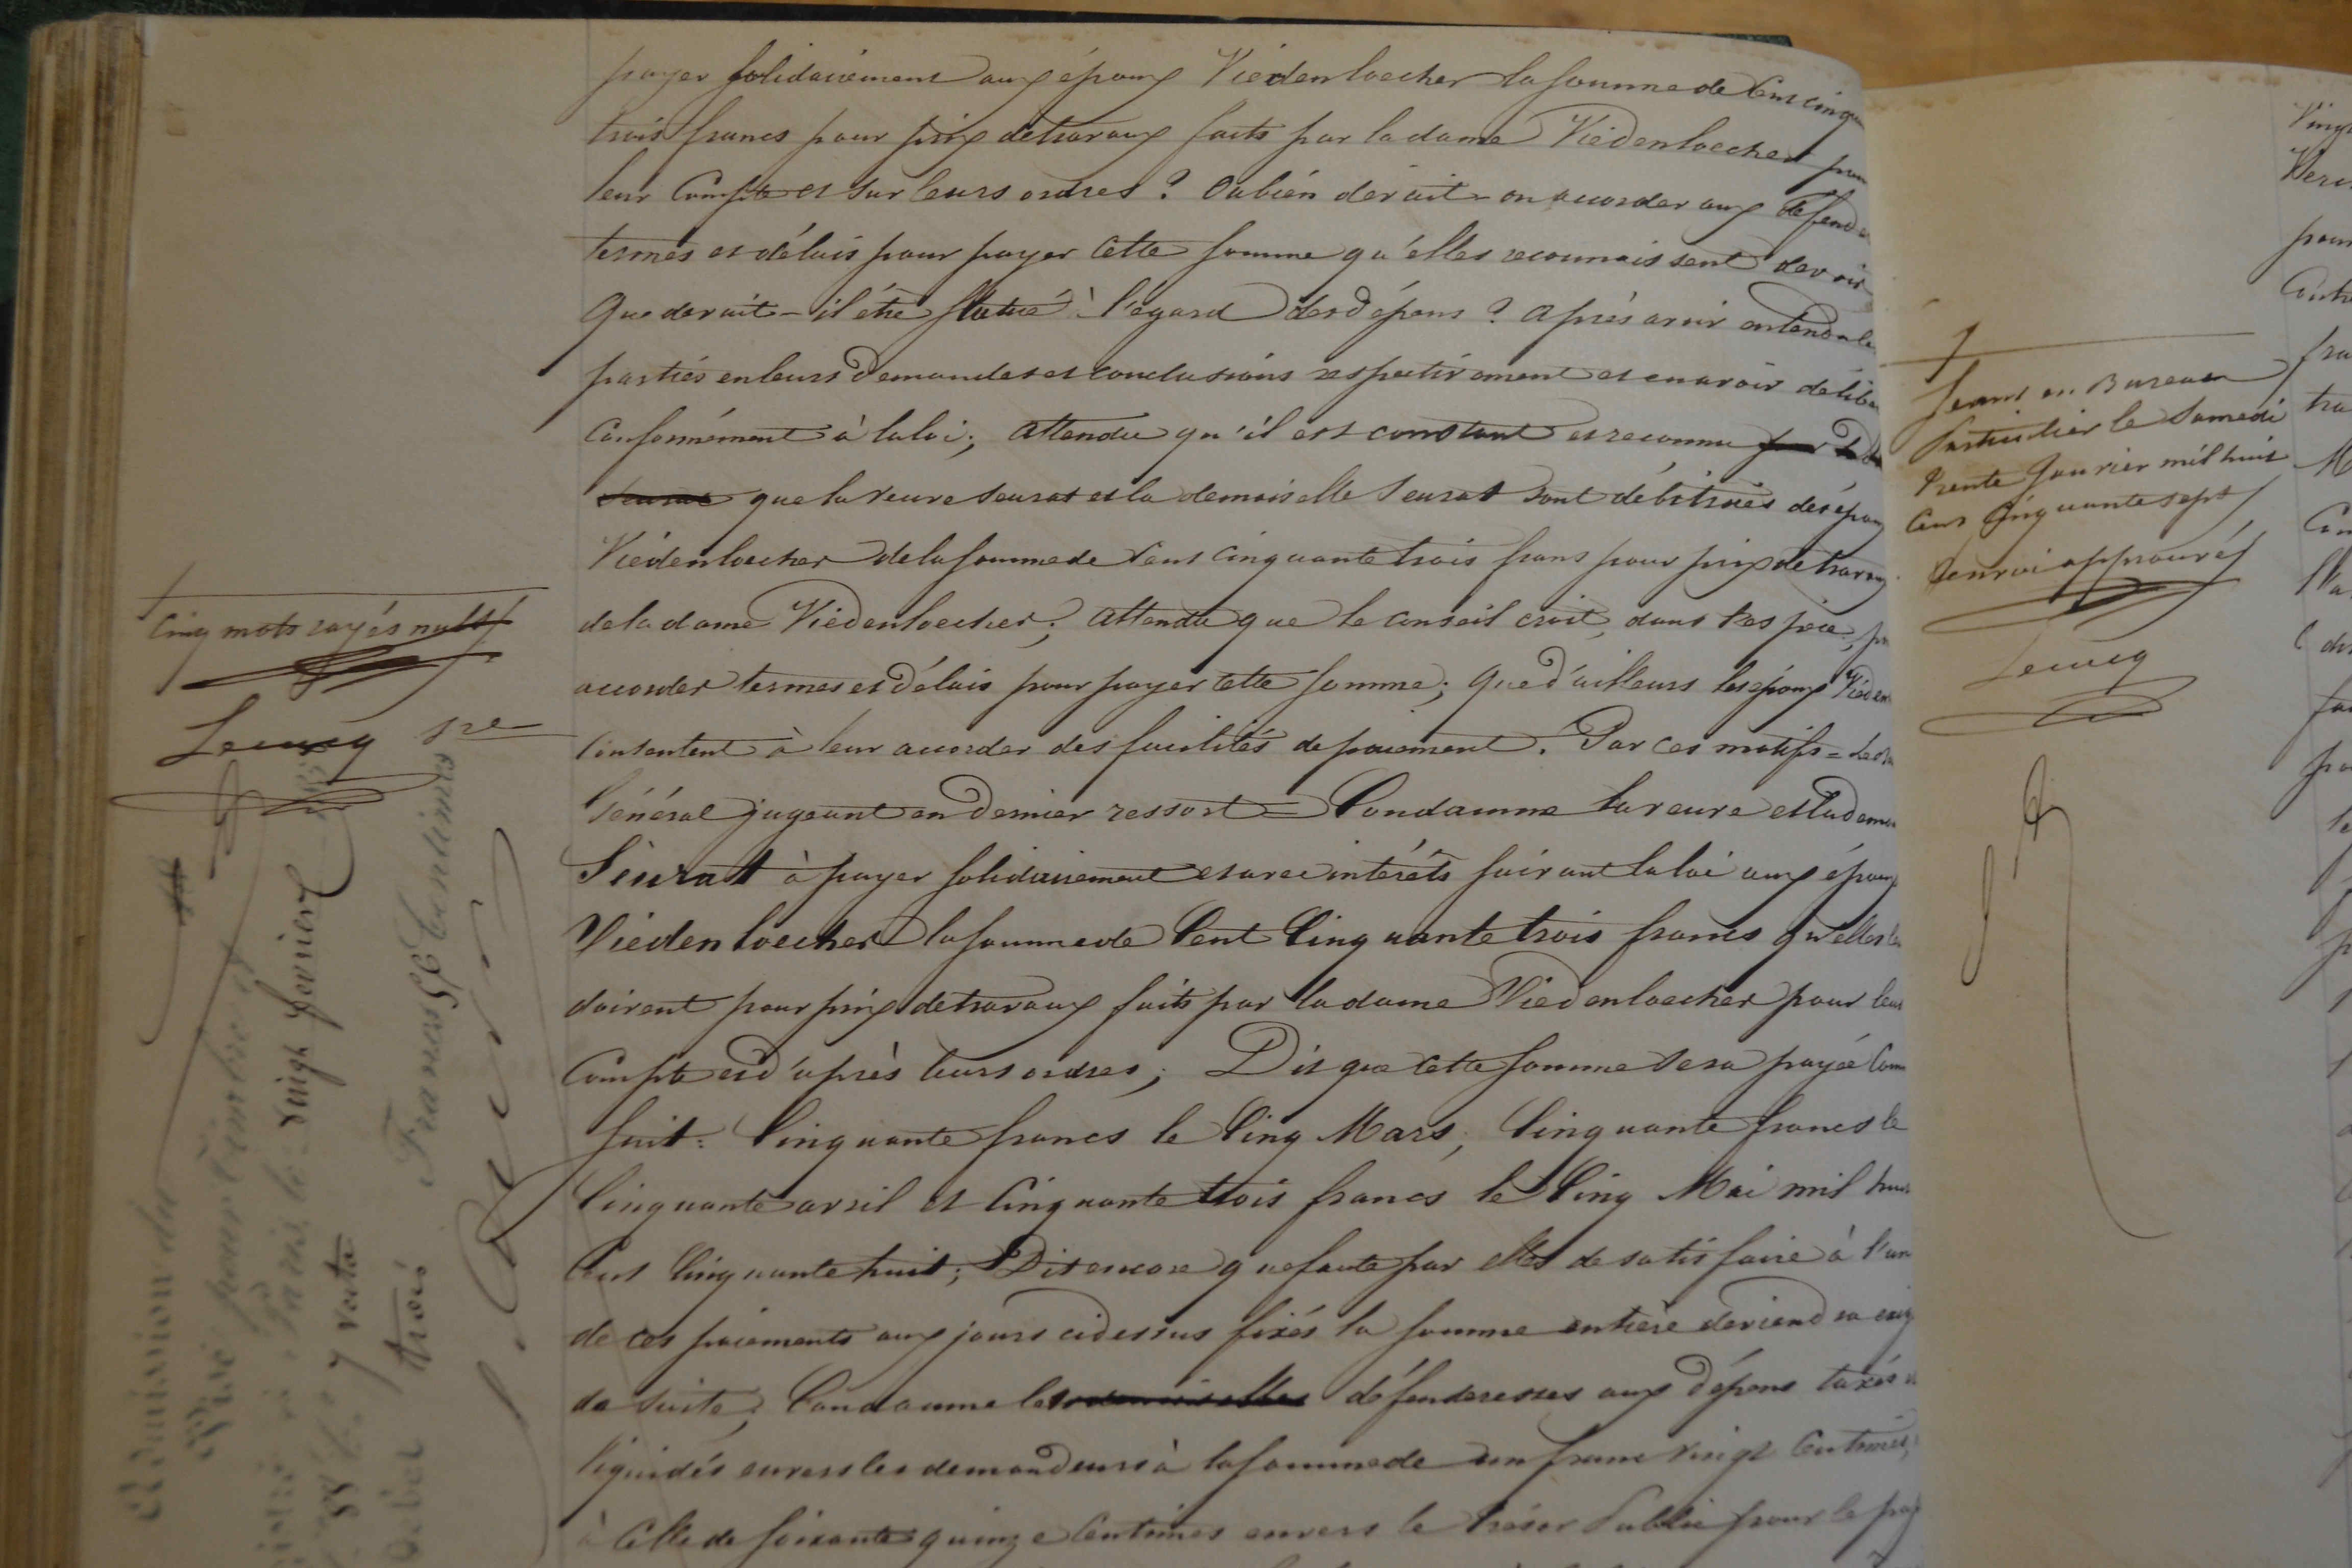 payer solidairement aux époux Viedenloecher la somme de Cent cinqu
trois francs pour prix de travaux faits par la dame Viedenloecher pour
leur Compte et sur leurs ordres ? Ou bien devait-on accorder aux défende
termes et délais pour payer cette somme qu'elles reconnaissent devoir
Que devait-il être statué à l'égard des dépens ? Après avoir entendu le
parties en leurs demandes et conclusions respectivement et en avoir délibé
Conformément à la loi ; attendu qu'il est constant et reconnu
que la veuve Seurat et la demoiselle Seurat sont débitrices des époux
Viedenloecher de la somme de Cent cinquante trois frans pour prix de travaux
de la dame Viedenloecher ; Attendu que le Conseil croit, dans l'espèce,
accorder termes et délais pour payer cette somme ; que d'ailleurs les époux Vieden
Consentent à leur accorder des facilités de paiement. Par ces motifs =
Général jugeant en dernier ressort = Condamne la veuve et la demoi
Seurat à payer solidairement et avec intérêts suivant la loi aux époux
Viedenloecher la somme de Cent Cinquante trois francs qu'elles
doivent pour prix de travaux faits par la dame Viedenloecher pour leur
Compte et d'après leurs ordres ; Dit que cette somme sera payée Com
suit : Cinquante francs le Cinq Mars ; Cinquante francs le
Cinquante avril et Cinquante trois francs le Cinq Mai mil huit
Cent Cinquante huit ; Dit encore que faute par elles de satisfaire à l'un
de ces paiements aux jours ci dessus fixés la somme entière deviendra exig
de suite ; Condamne les demoiselles défenderesses aux dépens taxés
liquidés envers les demandeurs à la somme de un franc vingt Centimes,
à Celle de soixante quinze Centimes envers le trésor Public pour le pap
Cinq mots rayés nuls
Lecucq
vingt février
7 verto
trois Francs Centimes
Séant en Bureau
Particulier le Samedi
trente Janvier mil huit
Cent Cinquante sept
Renvoi approuvé
Lecucq